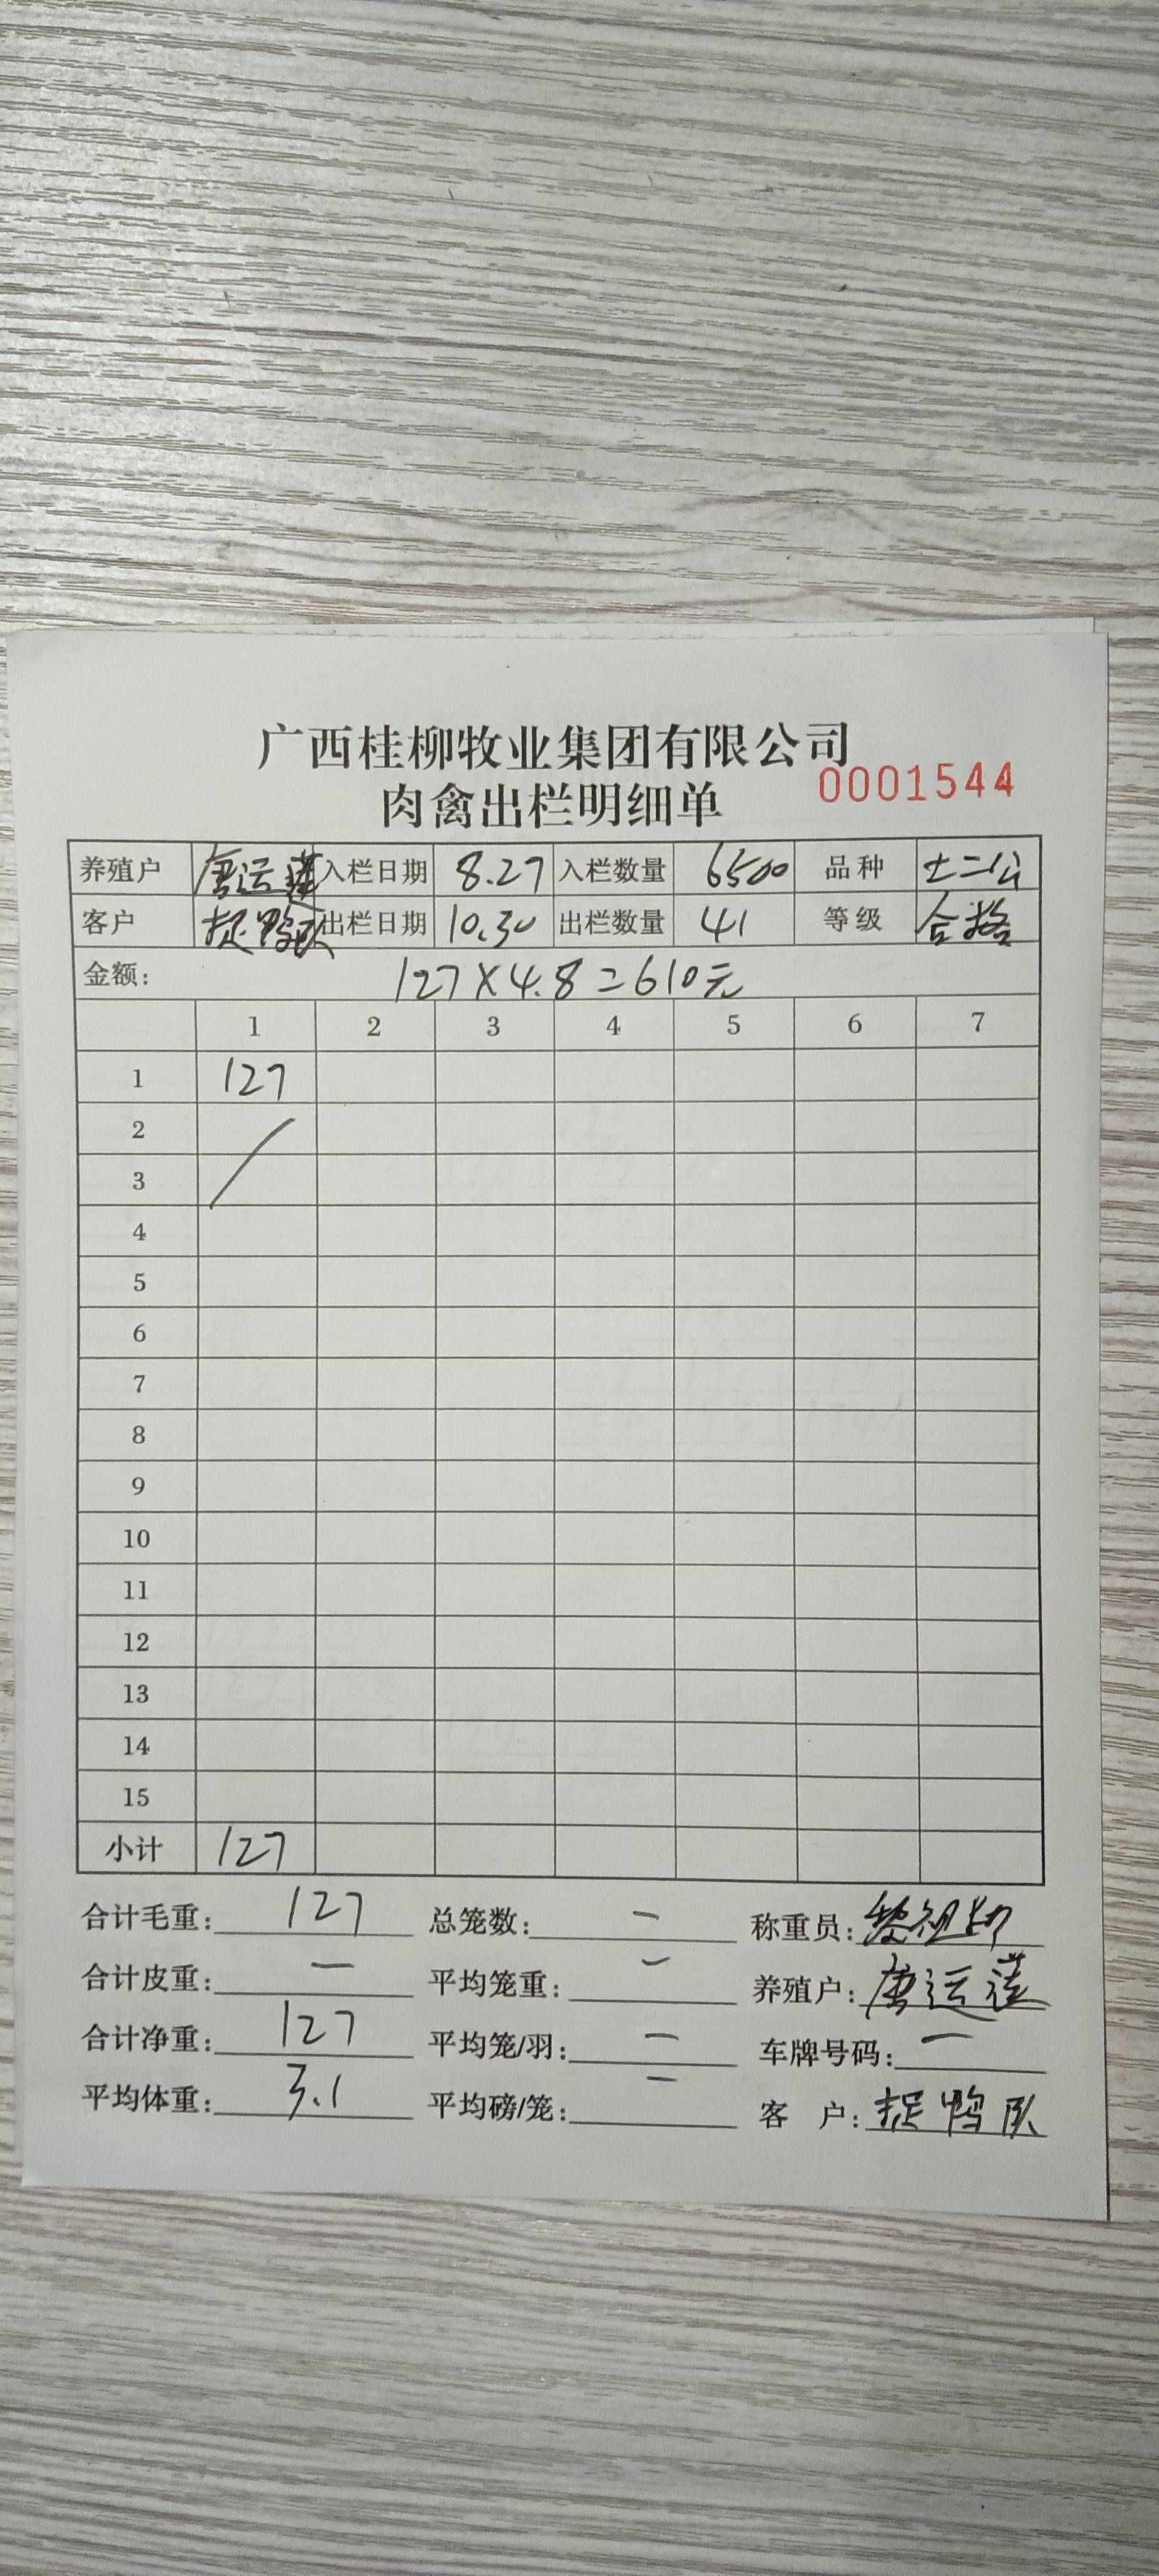 广西桂柳牧业集团有限公司
肉禽出栏明细单 0001544
养殖户 唐运莲 入栏日期 8.27 入栏数量 6500 品种 土二公
客户 捉鸭队 出栏日期 10.30 出栏数量 41 等级 合格
金额: 127×4.8=610元
1 2 3 4 5 6 7
1 127
2
3
4
5
6
7
8
9
10
11
12
13
14
15
小计 127
合计毛重: 127 总笼数: — 称重员:
合计皮重: — 平均笼重: — 养殖户: 唐运莲
合计净重: 127 平均笼/羽: — 车牌号码: —
平均体重: 3.1 平均磅/笼: — 客 户: 捉鸭队